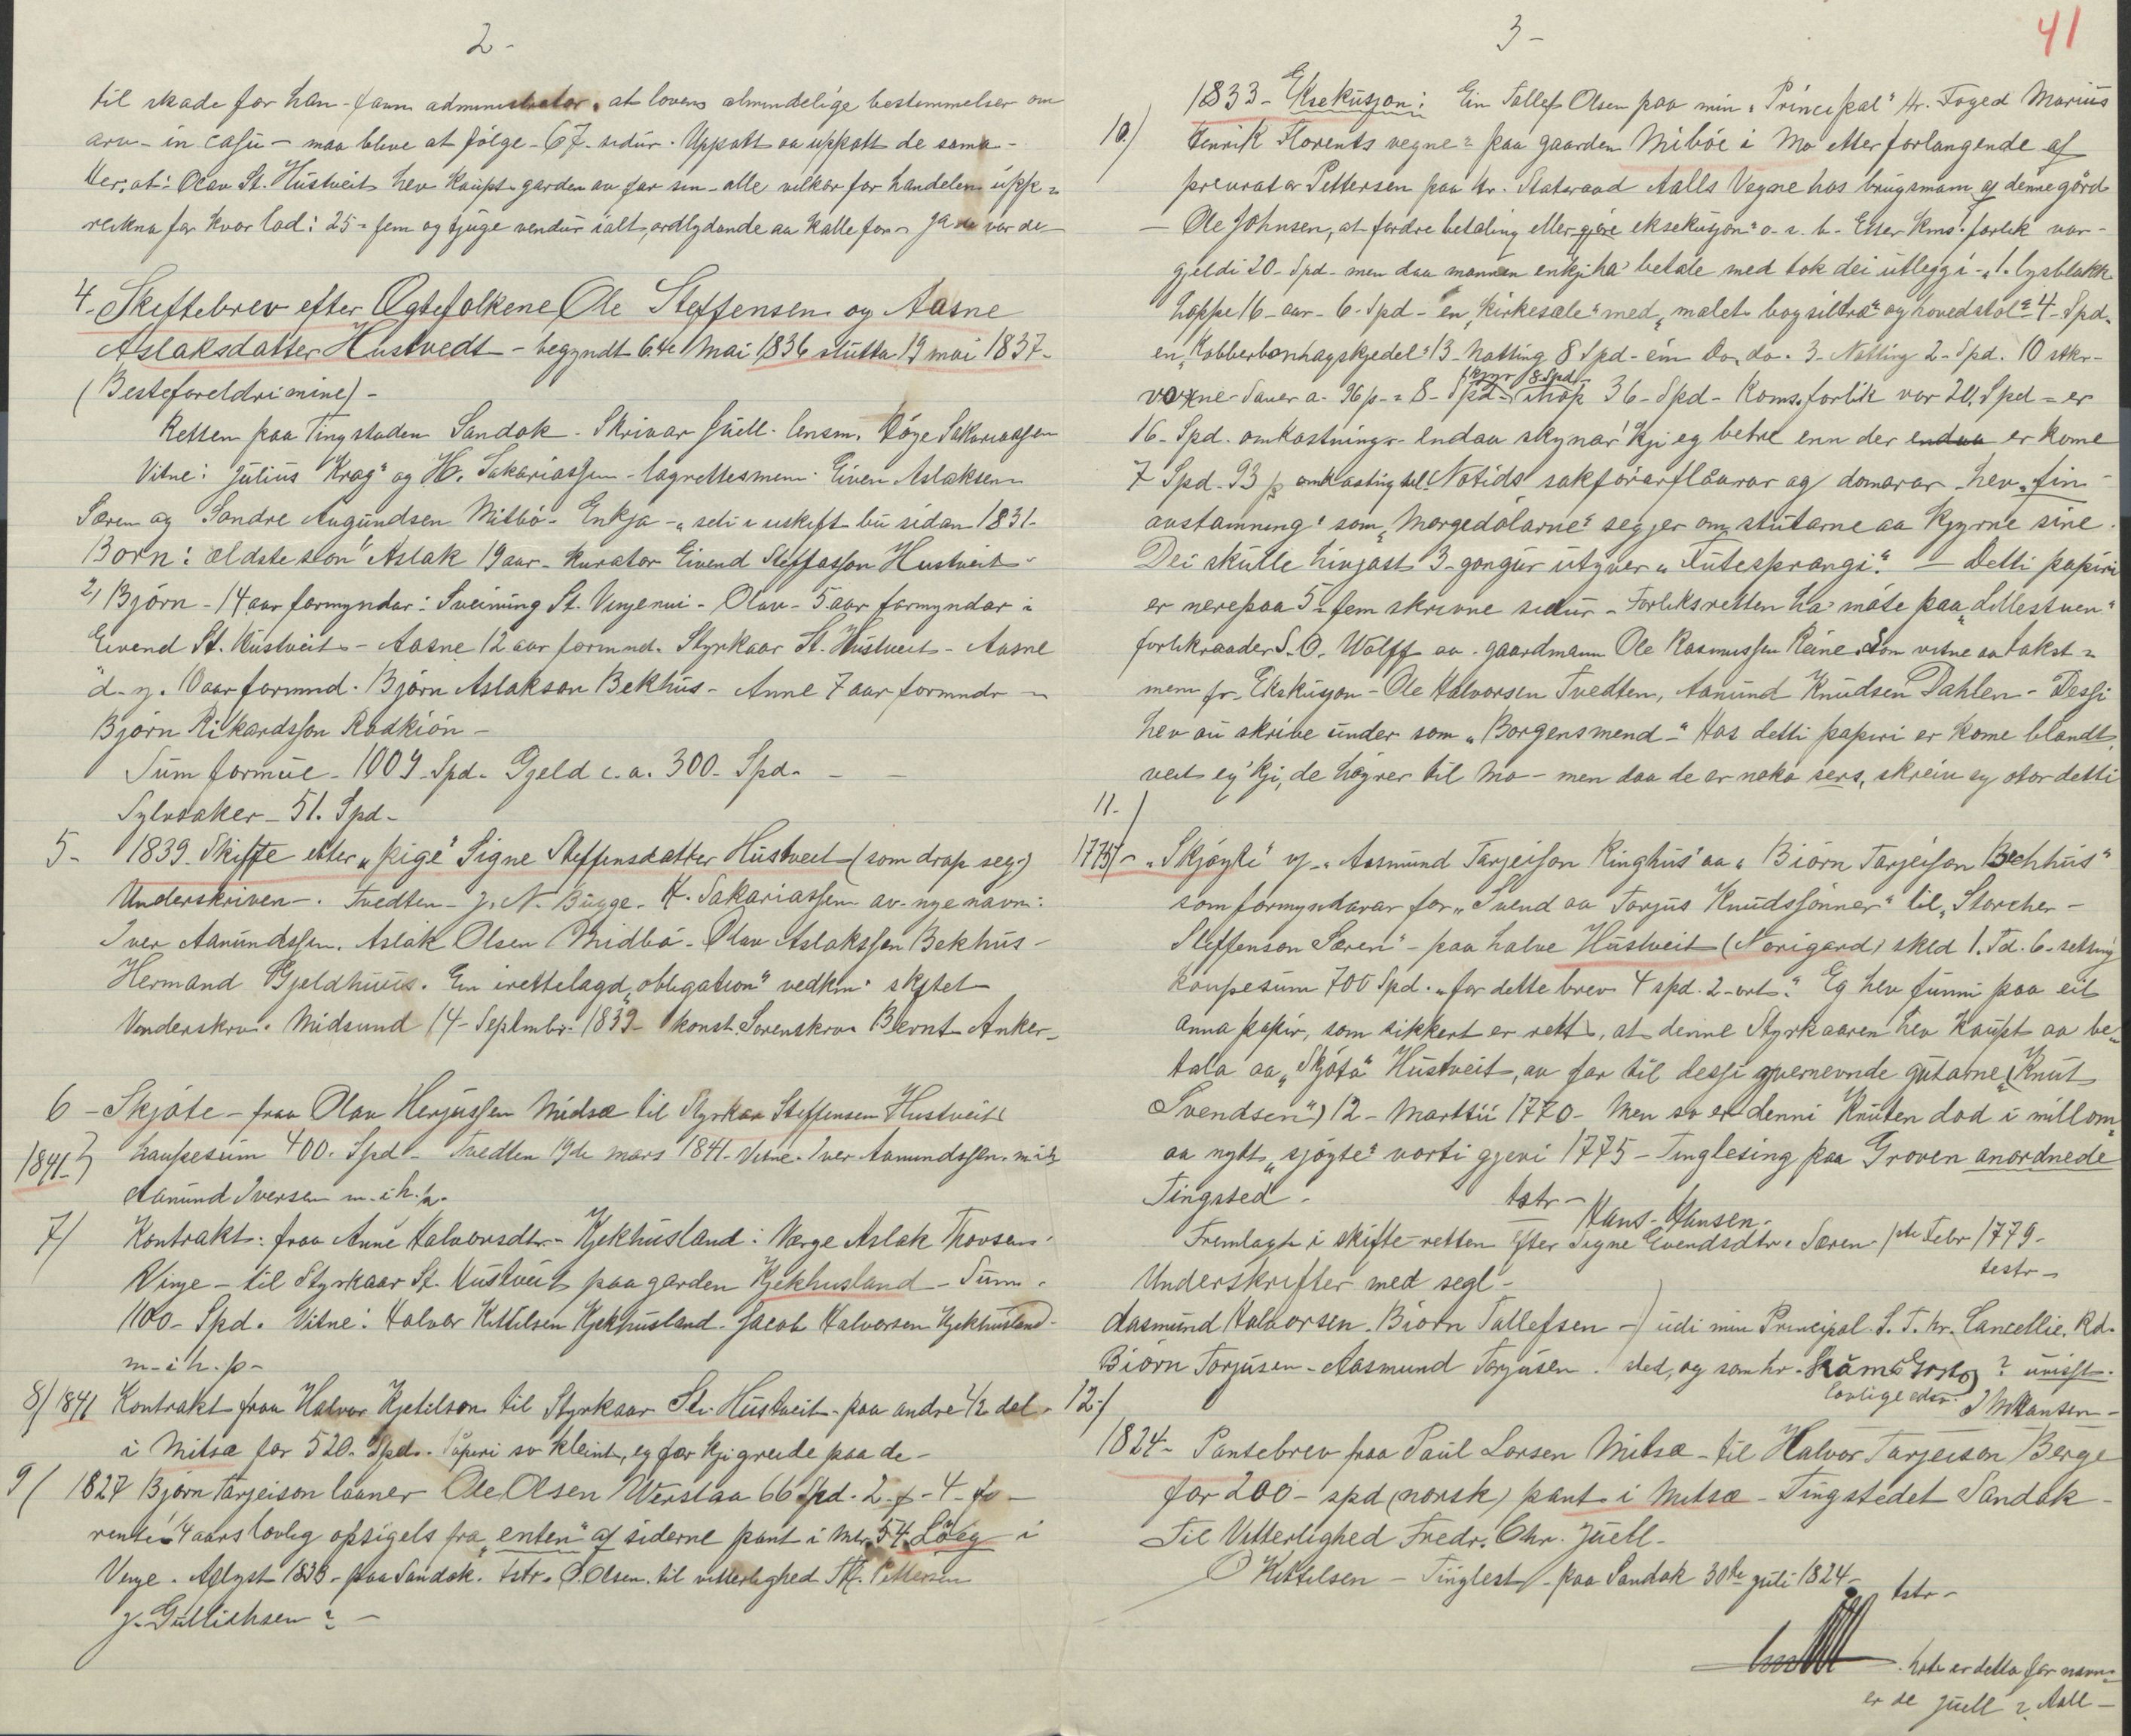 2 -
til skade for han - som administrator, at lovens almindelige bestemmelser om
arv - in casu - maa blive at fölge - 67 - sidur. Uppatt aa uppatt de sama -
Ier, at: Olav St. Hustveit hev kaupt garden av far sin - alle vilkor for handelen upp =
rekna for kvar lad: 25 = fem og tjuge vendur ialt, ordlydande aa kalle for - ja var de
4 - Skiftebrev efter Ægtefolkene Ole Steffensen og Aasne
Aslaksdatter Hustvedt - begyndt 6te Mai 1836 slutta 19 mai 1837 -
(Besteforeldri mine) -
Retten paa Tingstaden Sandok - Skrivar Juell - lensm. Höge Sakariassen
Vitne: Julius "Krag" og H. Sakariassen - lagrettesmenn: Eiven Aslaksen
Særen og Sondre Augundsen Mitbö - Enkja - "sedi i uskift bu sidan 1831 -
Born: ældste son" Aslak 19 aar - kurator Eivend Steffasson Hustveit -
2, Björn - 14 aar formyndar: Sveining St. Vinjenui - Olav - 5 aar formyndar :
Eivend St. Hustveit - Aasne 12 aar formnd. Styrkaar St. Hustveit - Aasne
"d. y. 10 aar formnd. Björn Aslakson Bekhus - Anne 7 aar formndr -
Björn Rikardsson Rodkiön -
Sum formue - 1009 - Spd. Gjeld c.a. 300 - Spd. - -
Sylvsaker - 51. Spd -
5 - 1839 - Skifte etter "pige" Signe Steffensdatter Hustveit (som drap seg)
Underskriven - . Tvedten - J. N. Bugge - H. Sakariassen av - nye navn:
Iver Aanundssen, Aslak Olsen Midbö - Olav Aslakssen Bekhus -
Hermand Gjeldhuus. En irettelagd "obligation" vedkm. skiftet
Underskrv. Midsund 14 - Septmbr. 1839 - konst. Sorenskrv. Bernt Anker -
6 - Skjöte - fraa Olav Herjussen Midsæ til Styrkar Steffensen Hustveit
1841 - ) kaupesum 400 - Spd - Tvedten 19de mars 1841 - Vitne - Iver Aanundssen - m.i.h.
Aanund Iversen m. i h. p.
7/ Kontrakt: fraa Anne Halvorsdtr. - Kjekhusland: Verge Aslak Thovsen
Vinje - til Styrkaar St. Hustveit paa garden Kjekhusland - Sum -
1100 - Spd. Vitne: Halvor Kittilsen Kjekhusland - Jacob Halvorsen Kjekhusland -
m - i h. p -
8/ 1841 Kontrakt fraa Halvor Kjetilson til Styrkaar St. Hustveit - paa andre 1/2 del -
i Mitsæ for 520 - Spd. Papiri so kleint, eg fær kji greide paa de -
9/ 1827 Björn Tarjeison laaner Ole Olsen Verslaa 66 Spd. 2 -
rente - 4 aars lovlig opsigels fra "enten" af siderne pant i 54 Löeg i
Vinje. Aflyst 1833 - paa Sandok. tstr. O. Olsen. til vitterlighed Th. Pettersen
J. Gullichsen ? -
3 -
41
10/ 1833 - Eksekusjon: Ein Tallef Olsen paa min "Principal" Hr. Foged Marius
Henrik Florents vegne = paa gaarden Miböe i Mo etter forlangende af
prcurator Pettersen paa Hr. Statsraad Aalls Vegne hos brugsmann af denne gård
- Ole Johnsen, at fordre betaling eller gjøre eksekusjon" o. s. b. Etter Kms. forlik var -
gjeldi 20 - Spd - men daa mannen enkji ha betale med tok dei utleggi - "1. lysblakk
hoppe 16 - aar - 6 - Spd - en "kirkesale" med "malet bogsiltræ" og hovedstol" 4 - Spd.
en "Kobberbonhagskjedel" 13 - Natting 8 Spd - ein do. do. 3 - Natting 2 - Spd. 10 stkr -
voxne Sauer a - 96 p - = 8 - Spd - ihop 36 - Spd - Koms. forlik var 20. Spd = er
16 - Spd. omkostningr - endaa skynar 'kji eg betre enn der endaa er kome
7 Spd. 93 p omkasting til. Notids sakförarflåarar og domarar - hev "fin -
avstamning" som "Morgedölarne" segjer om stutarne aa kjyrne sine.
Dei skulle hivjast 3 - gongur utyver "Futesprangi." - Detti papiri
er nerepaa 5 = fem skrivne sidur - Forliksretten ha' möte paa "Lillestuen"
forlikraader S. O. Wolff aa - gaardmann Ole Rasmussen Reine. Som vitne aa takst =
menn fr. Ekskusjon - Ole Halvorsen Tvedten, Aanund Knudsen Dahlen - Dessi
hev au skrive under som "Borgensmend -" Hos detti papiri er kome blandt,
veit eg 'kji, de höyrer til Mo - men daa de er noko sers, skreiv eg otor detti
11 - /
1775/ - "Skjöyte" vj - "Aasmund Tarjeison Ringhus" aa "Biörn Tarjeison Bechhus"
som formyndarar for "Svend aa Torjus Knudssönner" til "Storcher -
Steffenson Særen" - paa halve Hustveit (Norigard) skld 1. Td. 6 - setting
kaupesum 700 Spd. "for dette brev 4 spd. 2 - ort." Eg hev funni paa eit
anna papir, som sikkert er rett, at denne Styrkaaren hev kaupt aa be =
tala aa "Skjötå" Hustveit, av far til dessi yvernevnde gutarne, (Knut
Svendsen") 12 - Martsii 1770 - Men so er denni Knuten dod i millom
aa nytt "sjöyte" vorti gjevi 1775 - Tinglesing paa Groven anordnede
Tingsted - tstr - Hans - Hansen -
Fremlagt i skifte-retten Efter Signe Evendsdtr. Særen - 1ste Febr 1779 -
testr -
Underskrifter med segl -
Aasmund Halvorsen. Biörn Tallefsen - ) udi min Principal. S. T. hr. Cancellie. Rd.
Biörn Torjusen - Aasmund Torjusen. sted, og som hr. ? uvisst.
lovlige edsv. I M Hansen -
12 - /
1824 - Pantebrev fraa Paul Larsen Mitsæ - til Halvor Tarjeison Berge
for 200 - spd (norsk) pant i Mitsæ - Tingstedet Sandok -
Til Vitterlighed Fredr. Chr. Juell -
O Kittelsen - Tinglest - paa Sandok 30te juli 1824 -
tstr -
er detta for navn =
er de Juell ? Aall -